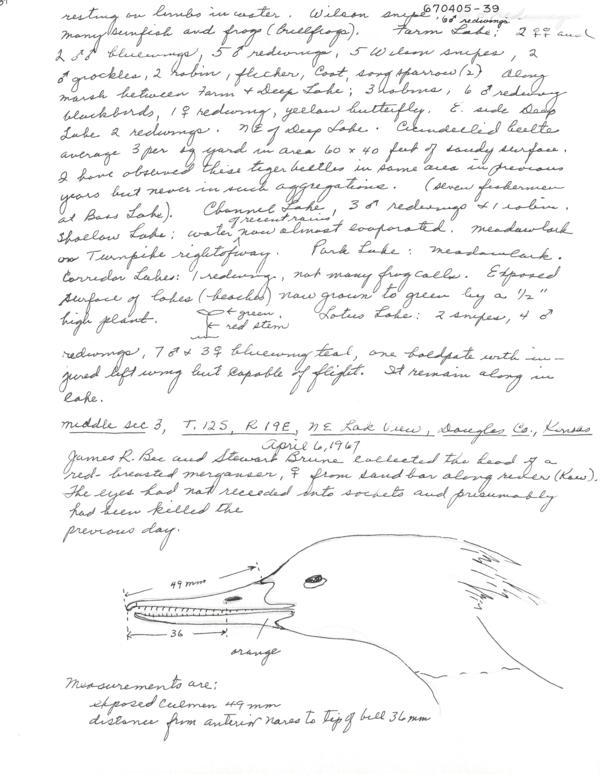 670405-39
resting on limbs in water. Wilson snipe, 60 redwings
many sunfish and frog (bullfrogs). Farm Lake: 2 ♀♀ and
2 ♂♂ bluewings, 5 ♂ redwings, 5 Wilson snipes, 2
♂ grackles, 2 robin, flicker, Coot, song sparrow (2) Along
marsh between Farm & Deep Lake; 3 robins, 6 ♂ redwing
blackbirds, 1 ♀ redwing, yellow butterfly. E. side Deep
Lake 2 redwings. NE of Deep Lake. Cicindellid beetle
average 3 per sq yard in area 60 x 40 feet of sandy surface.
I have observed these tiger beetles in same area in previous
years but never in such aggregations. (seven fishermen
at Bass Lake). Channel Lake, 3 ♂ redwings & 1 robin.
Shallow Lake; water of recent rains now almost evaporated. meadowlark
on Turnpike right of way. Park Lake: meadowlark.
Corridor Lakes: 1 redwing, not many frog calls. Exposed
surface of lakes (beaches) now grown to green by a 1/2"
high plant. ← green. Lotus Lake: 2 snipes, 4 ♂
← red stem
redwings, 7 ♂ & 3 ♀ bluewing teal, one baldpate with in-
jured left wing but capable of flight. It remain along in
lake.
middle sec 3, T. 12S, R 19E, NE Lak View, Douglas Co., Kansas
April 6, 1967
James R. Bee and Stewart Brune collected the head of a
red-breasted merganser, ♀ from sand bar along river (Kaw).
The eyes had not receded into sockets and presumably
had been killed the
previous day.
49 mm
36
orange
Measurements are:
exposed culmen 49 mm
distance from anterior nares to tip of bill 36 mm